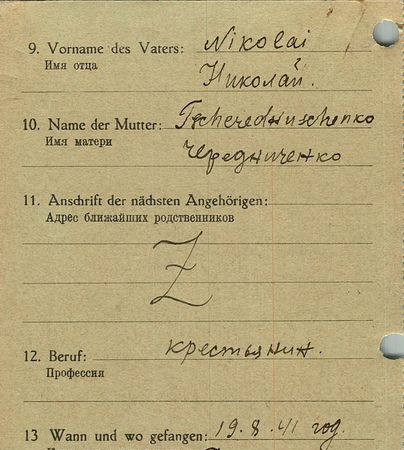 9. Vorname des Vaters: Nikolai
Имя отца Николай.
10. Name der Mutter: Tscherednischenko
Имя матери Чередниченко
11. Anschrift der nächsten Angehörigen:
Адрес ближайших родственников
Z
12. Beruf: крестьянин.
Профессия
13 Wann und wo gefangen: 19.8.41 год.